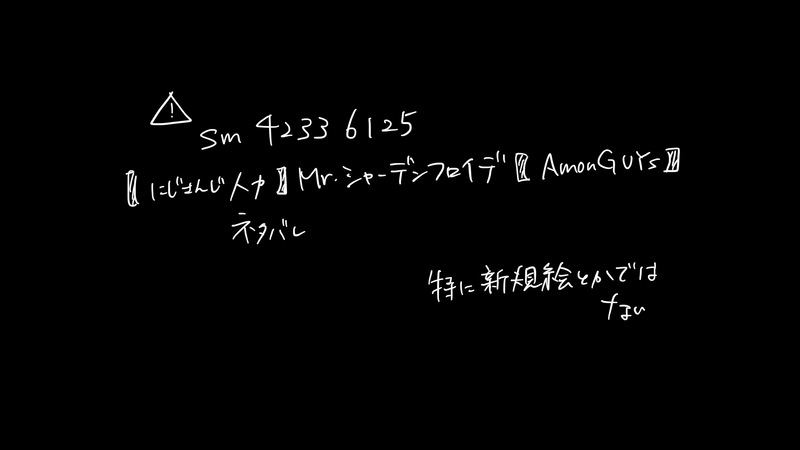 ⚠
sm 42336125
【にじさんじ人力】Mr.シャーデンフロイデ【AmonGUYs】
ネタバレ
特に新規絵とかでは
ない